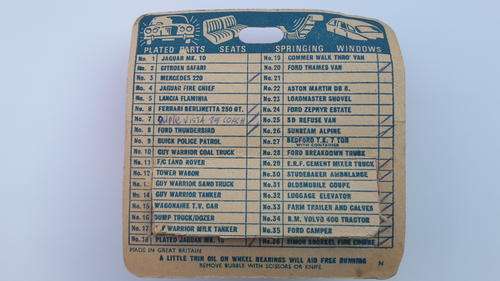 PLATED PARTS SEATS SPRINGING WINDOWS
No. 1 JAGUAR MK. 10
No. 2 CITROEN SAFARI
No. 3 MERCEDES 220
No. 4 JAGUAR FIRE CHIEF
No. 5 LANCIA FLAMINIA
No. 6 FERRARI BERLINETTA 250 GT.
No. 7 VISTA COACH
No. 8 FORD THUNDERBIRD
No. 9 BUICK POLICE PATROL
No. 10 GUY WARRIOR COAL TRUCK
No. 11 F/C LAND ROVER
No. 12 TOWER WAGON
No. 13 GUY WARRIOR SAND TRUCK
No. 14 GUY WARRIOR TANKER
No. 15 WAGONAIRE T.V. CAR
No. 16 DUMP TRUCK/DOZER
No. 17 WARRIOR MILK TANKER
No. 18 PLATED JAGUAR MK. 10
No. 19 COMMER WALK THRO' VAN
No. 20 FORD THAMES VAN
No. 21
No. 22 ASTON MARTIN DB 5.
No. 23 LOADMASTER SHOVEL
No. 24 FORD ZEPHYR ESTATE
No. 25 SD REFUSE VAN
No. 26 SUNBEAM ALPINE
No. 27 BEDFORD T.K. 7 TON
WITH CONTAINER
No. 28 FORD BREAKDOWN TRUCK
No. 29 E.R.F. CEMENT MIXER TRUCK
No. 30 STUDEBAKER AMBULANCE
No. 31 OLDSMOBILE COUPE
No. 32 LUGGAGE ELEVATOR
No. 33 FARM TRAILER AND CALVES
No. 34 B.M. VOLVO 400 TRACTOR
No. 35 FORD CAMPER
No. 36 SIMON SNORKEL FIRE ENGINE
MADE IN GREAT BRITAIN
A LITTLE THIN OIL ON WHEEL BEARINGS WILL AID FREE RUNNING
REMOVE BUBBLE WITH SCISSORS OR KNIFE.
N